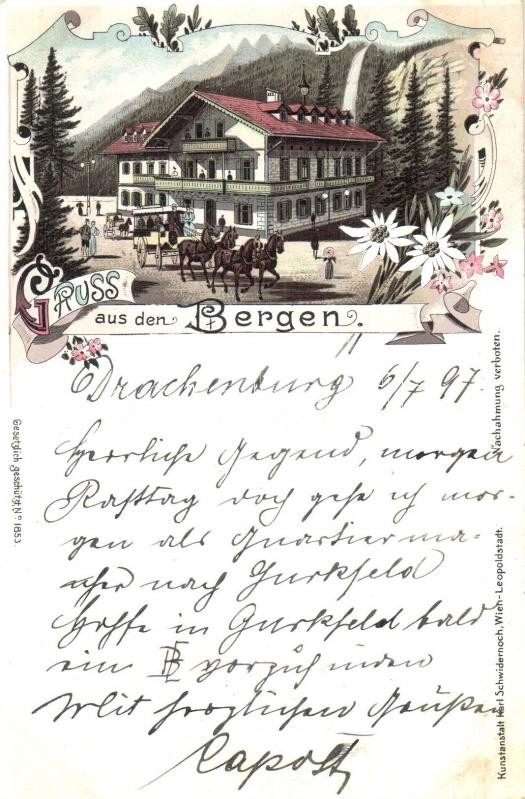 Gruss
aus den Bergen.
Drachenburg 6/7 97
Herrliche Gegend, morgen
Rasttag doch gehe ich mor-
gen als Quartierma-
cher nach Gurkfeld
Hoffe in Gurkfeld bald
ein vorzufinden
Mit herzlichen Grüßen
Gesetzlich geschützt No 1853.
Nachahmung verboten.
Kunstanstalt Karl Schwidernoch, Wien-Leopoldstadt.